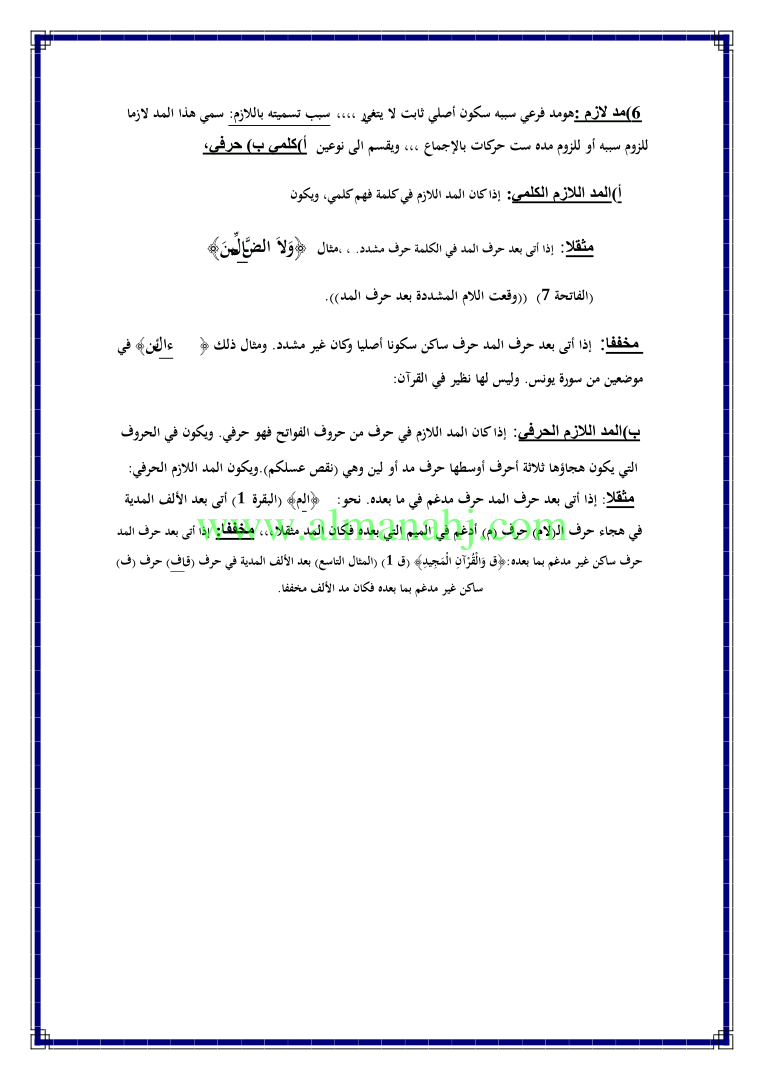 6)مد لازم :هومد فرعي سببه سكون أصلي ثابت لا يتغير ،،،، سبب تسميته باللازم: سمي هذا المد لازما
للزوم سببه أو للزوم مده ست حركات بالإجماع ،،، ويقسم الى نوعين أ)كلمي ب) حرفي،
أ)المد اللازم الكلمي: إذا كان المد اللازم في كلمة فهم كلمي، ويكون
مثقلا: إذا أتى بعد حرف المد في الكلمة حرف مشدد. ، ،مثال ﴿وَلاَ الضَّالِّينَ﴾
(الفاتحة 7) ((وقعت اللام المشددة بعد حرف المد)).
مخففا: إذا أتى بعد حرف المد حرف ساكن سكونا أصليا وكان غير مشدد. ومثال ذلك ﴿ ءالئن﴾ في
موضعين من سورة يونس. وليس لها نظير في القرآن:
ب)المد اللازم الحرفي: إذا كان المد اللازم في حرف من حروف الفواتح فهو حرفي. ويكون في الحروف
التي يكون هجاؤها ثلاثة أحرف أوسطها حرف مد أو لين وهي (نقص عسلكم).ويكون المد اللازم الحرفي:
مثقلا: إذا أتى بعد حرف المد حرف مدغم في ما بعده. نحو: ﴿الم﴾ (البقرة 1) أتى بعد الألف المدية
في هجاء حرف ال(لام) حرف (م) أدغم في الميم التي بعده فكان المد مثقلا،،، مخففا: إذا أتى بعد حرف المد
حرف ساكن غير مدغم بما بعده:﴿ق وَالْقُرْآنِ الْمَجِيدِ﴾ (ق 1) (المثال التاسع) بعد الألف المدية في حرف (قاف) حرف (ف)
ساكن غير مدغم بما بعده فكان مد الألف مخففا.
www.almanahj.com